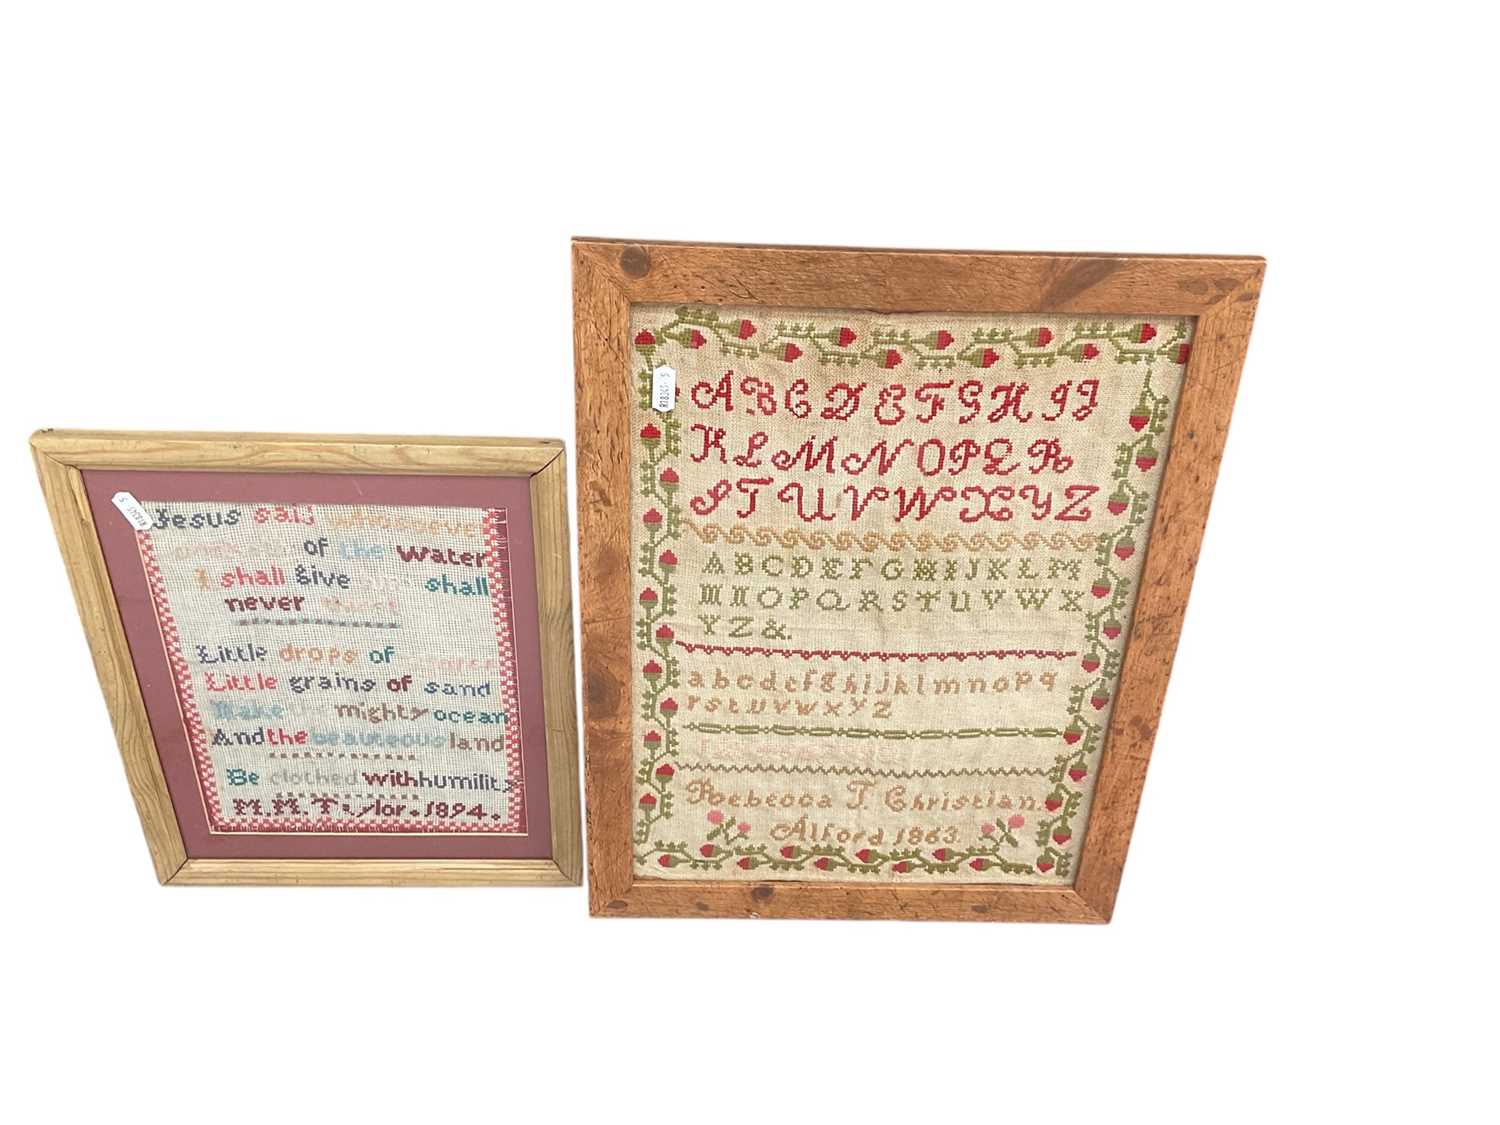 Jesus said whosoever
of the water
I shall give shall
never thirst
Little drops of
Little grains of sand
Make the mighty ocean
And the beauteous land
Be clothed with humility
M.M. Taylor. 1894.
A B C D E F G H I J
K L M N O P Q R
S T U V W X Y Z
A B C D E F G H I J K L M
N O P Q R S T U V W X
Y Z &.
a b c d e f g h i j k l m n o p q
r s t u v w x y z
Rebecca T. Christian.
Alford 1863